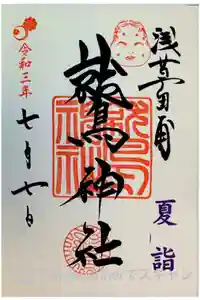 浅草田甫
夏詣
鷲神社
令和三年
七月十日